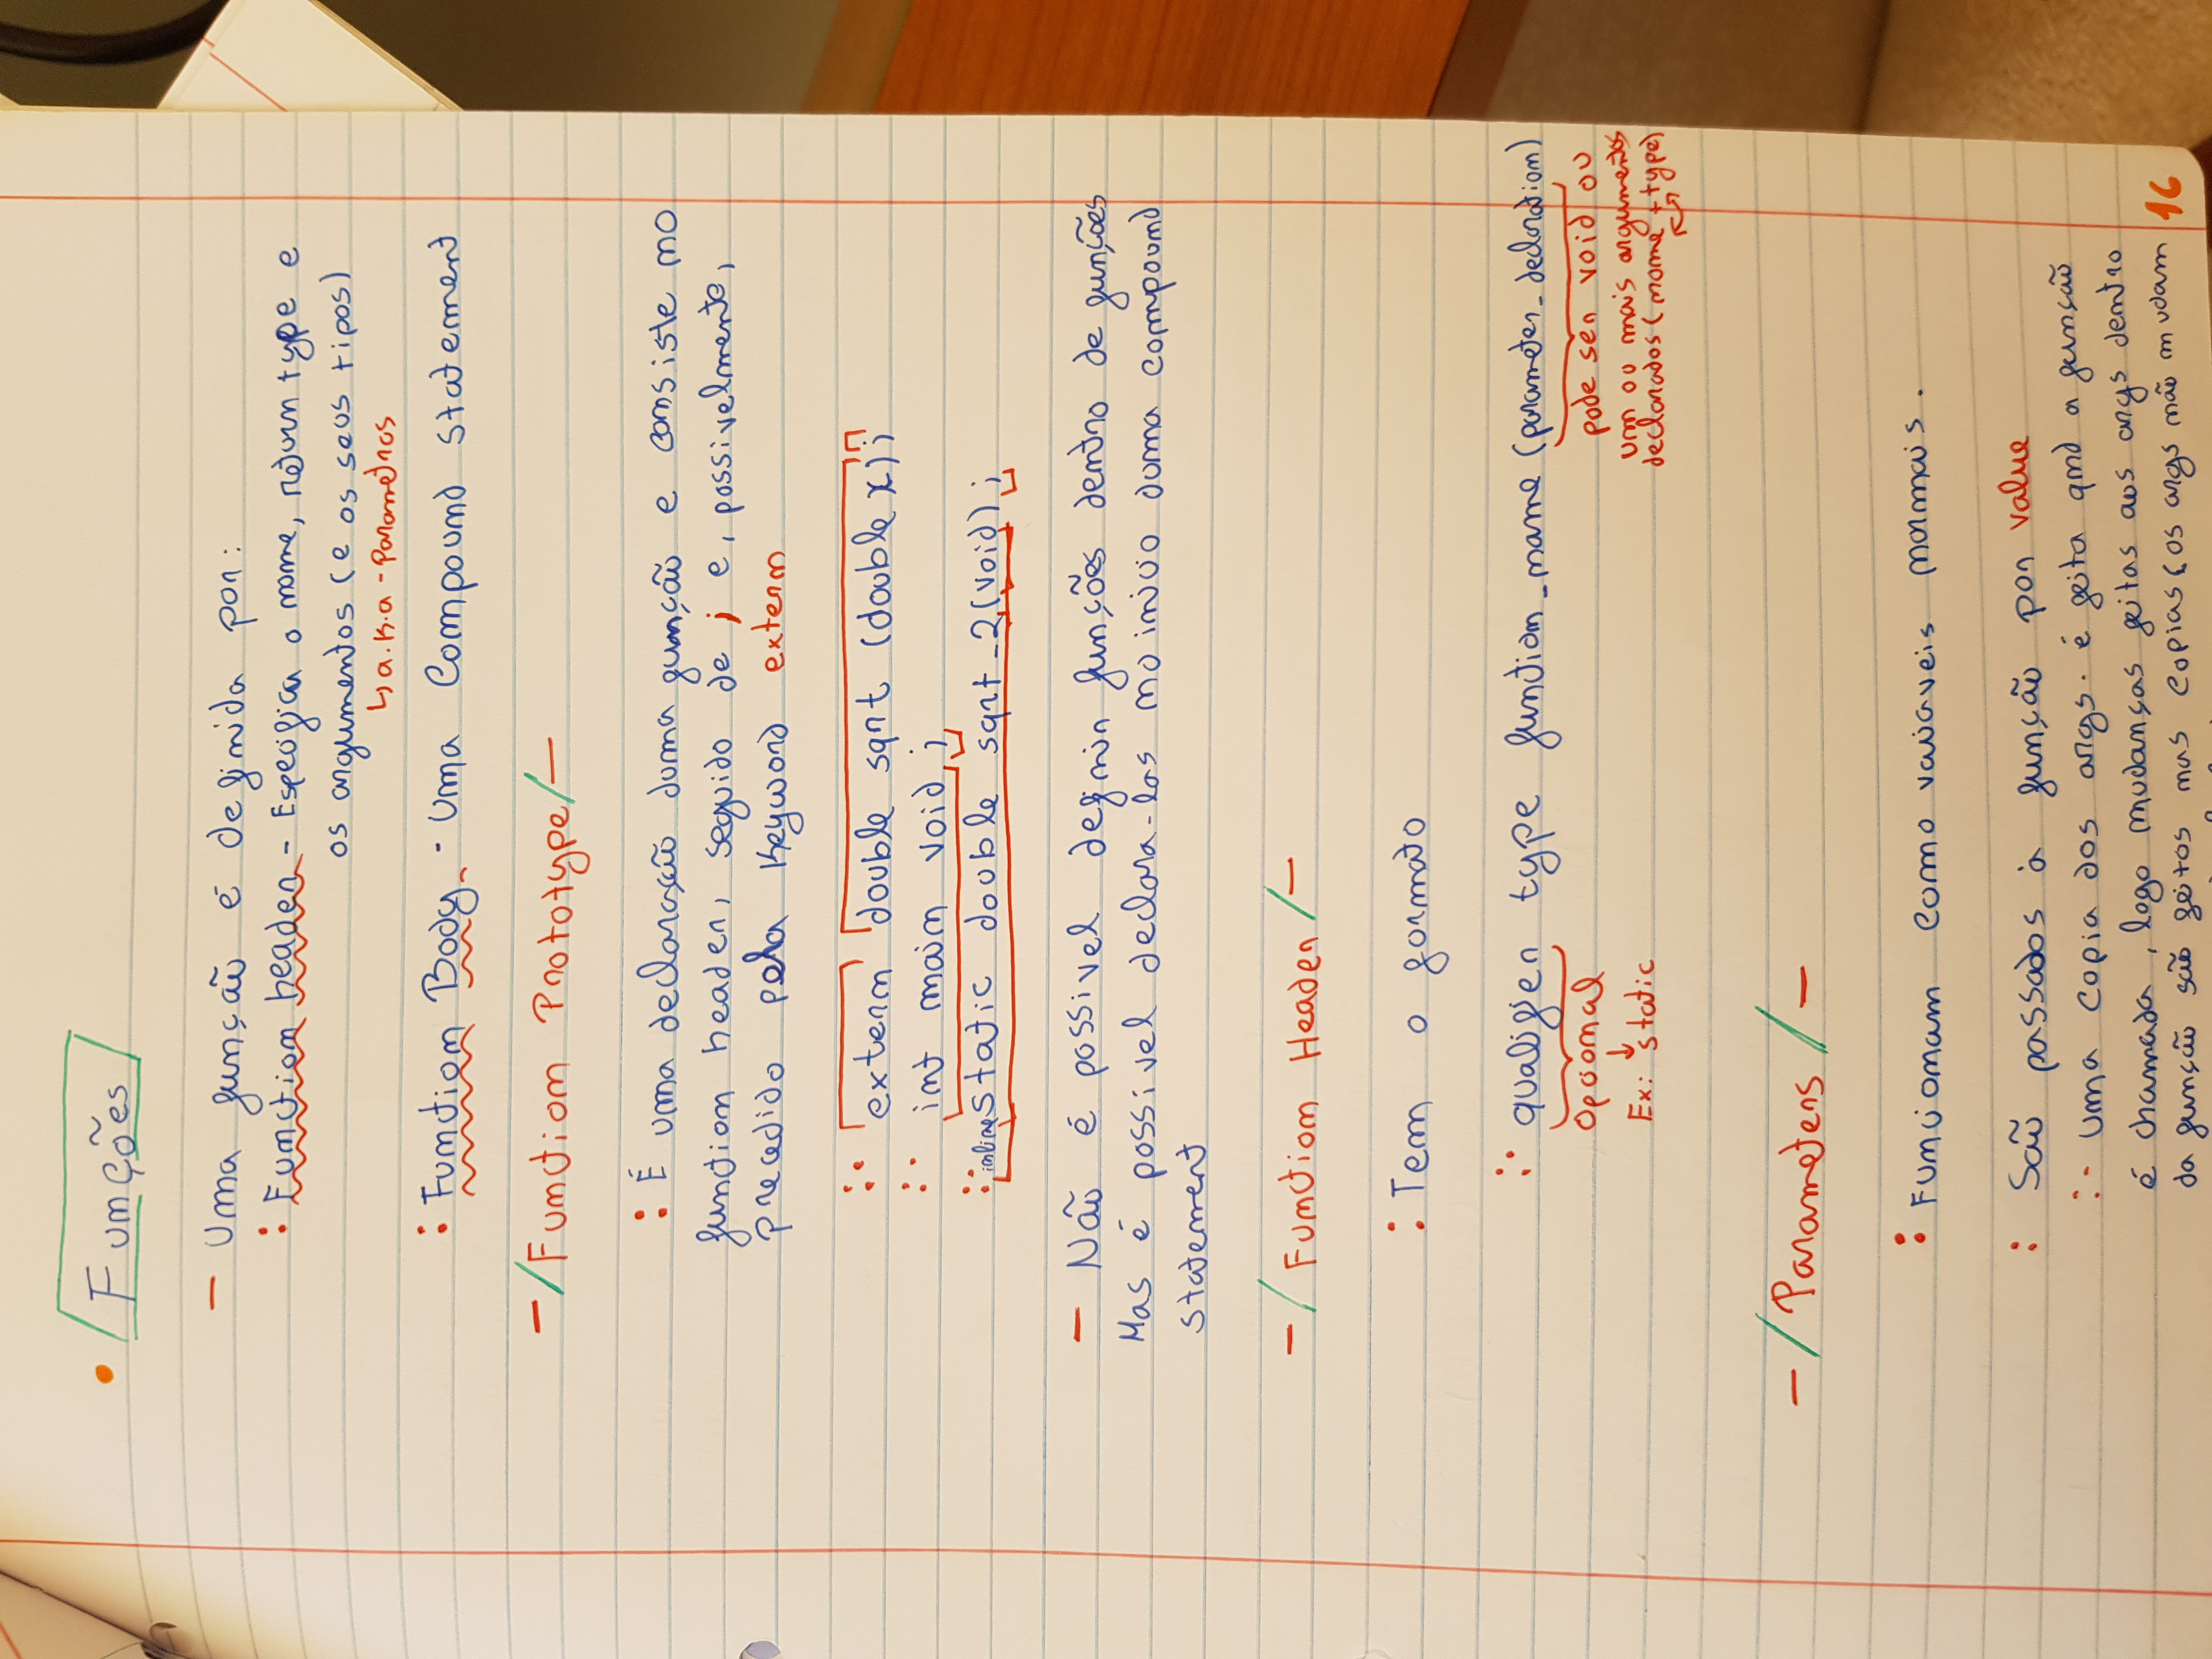 Funções
- Uma função é definida por:
: Function header - Especifica o nome, return type e
os argumentos (e os seus tipos)
↳ a.k.a - Parametros
: Function Body - Uma Compound statement
-/Function Prototype/-
: É uma declaração duma função e consiste no
function header, seguido de ; e, possivelmente,
precedido pela Keyword extern
:· extern double sqrt (double x);
:· int main void ;
: inline static double sqrt_2(void) ;
- Não é possivel definir funções dentro de funções
Mas é possivel declara-las no inicio duma compound
statement
-/ Function Header /-
: Tem o formato
:· qualifier type function_name (parameter_declaration)
Opcional
pode ser void ou
um ou mais argumentos
↓
Ex: static
declarados (nome + type)
-/ Parameters /-
: Funcionam como variaveis normais.
: São passados à função por value
:- Uma copia dos args. é feita qnd a função
é chamada, logo mudanças feitas aos args dentro
da função são feitos nas copias (os args não mudam
16